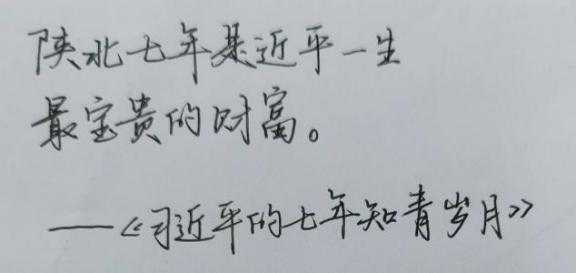 陕北七年是近平一生
最宝贵的财富。
——《习近平的七年知青岁月》